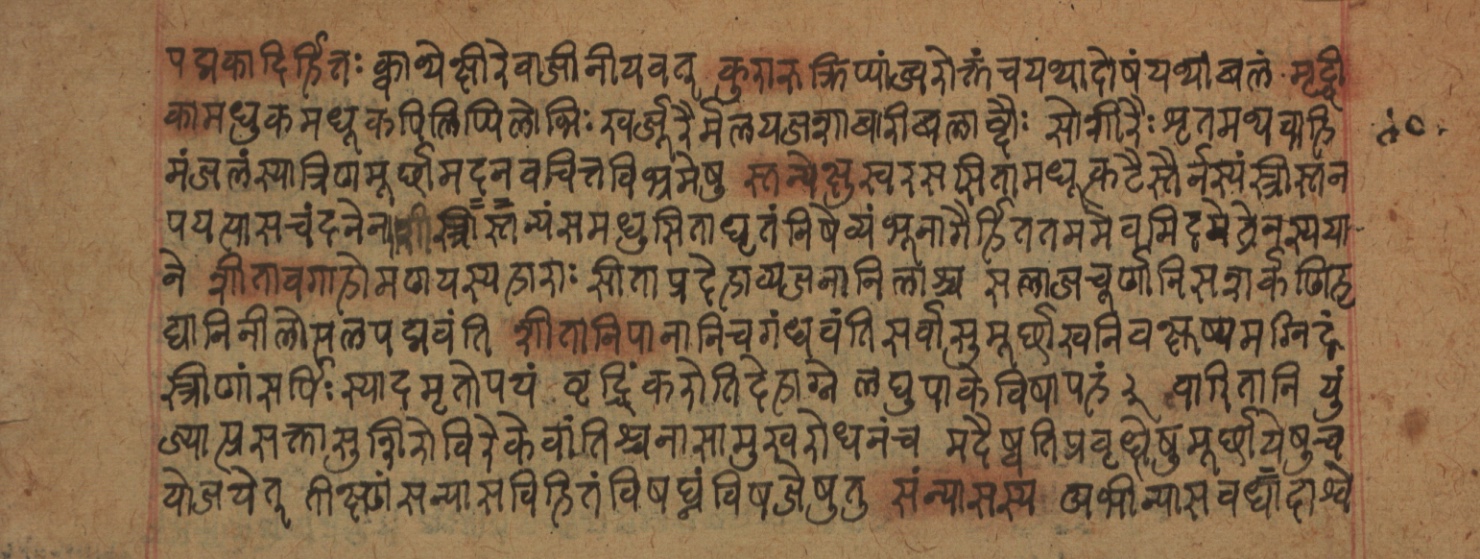 पद्मकादिर्हितः क्वाथ्येक्षीरेवाजीनीयवत् कुरारुक्रिप्यांज्वरोक्तंचयथादोषंयथाबलं मृद्वी
कामधुकमधूकपिलिप्पिलोभिः खर्जूरैर्मलयजशाबारीबलाब्दैः सोशीरैः शृतमथवाहि
मंजलंस्यात्रिणमूर्छामदनवचित्तविभ्रमेषु स्तन्येक्षुस्वरससितामधूत्कटैस्तैर्नस्यंस्त्रीस्तन
पयत्यासचंदनेन स्तन्यंसमधुसिताघृतंनिषेव्यं भूनागैर्हिततममेवमिदमेत्रेनस्यया
ने शीतावगाहोमणयस्यहाराः सीताप्रदेहाव्यजनानिलाश्च सलाजचूर्णानिसशर्कणिह
द्यानिनीलोत्पलपद्मवंति शीतानिपानानिचगंधवंति सर्वासुमूर्छास्वनिवक्रष्यमग्निदं
स्त्रीणांसर्पिः स्यादमृतोपयं वृद्धिंकरोतिदेहाग्ने लघुपाकेविषापहं २ वारितानि युं
ज्याप्रसक्तासुशिरोविरेकेवांतिश्चनासामुखरोधनंच मदैष्वतिप्रवृद्धेषुमूर्छायेषुच
योजयेत् तीक्ष्णंसन्यासविहितंविषघ्नंविषजेषुतु संन्यासस्य अभीन्यासवर्धांदाश्वे